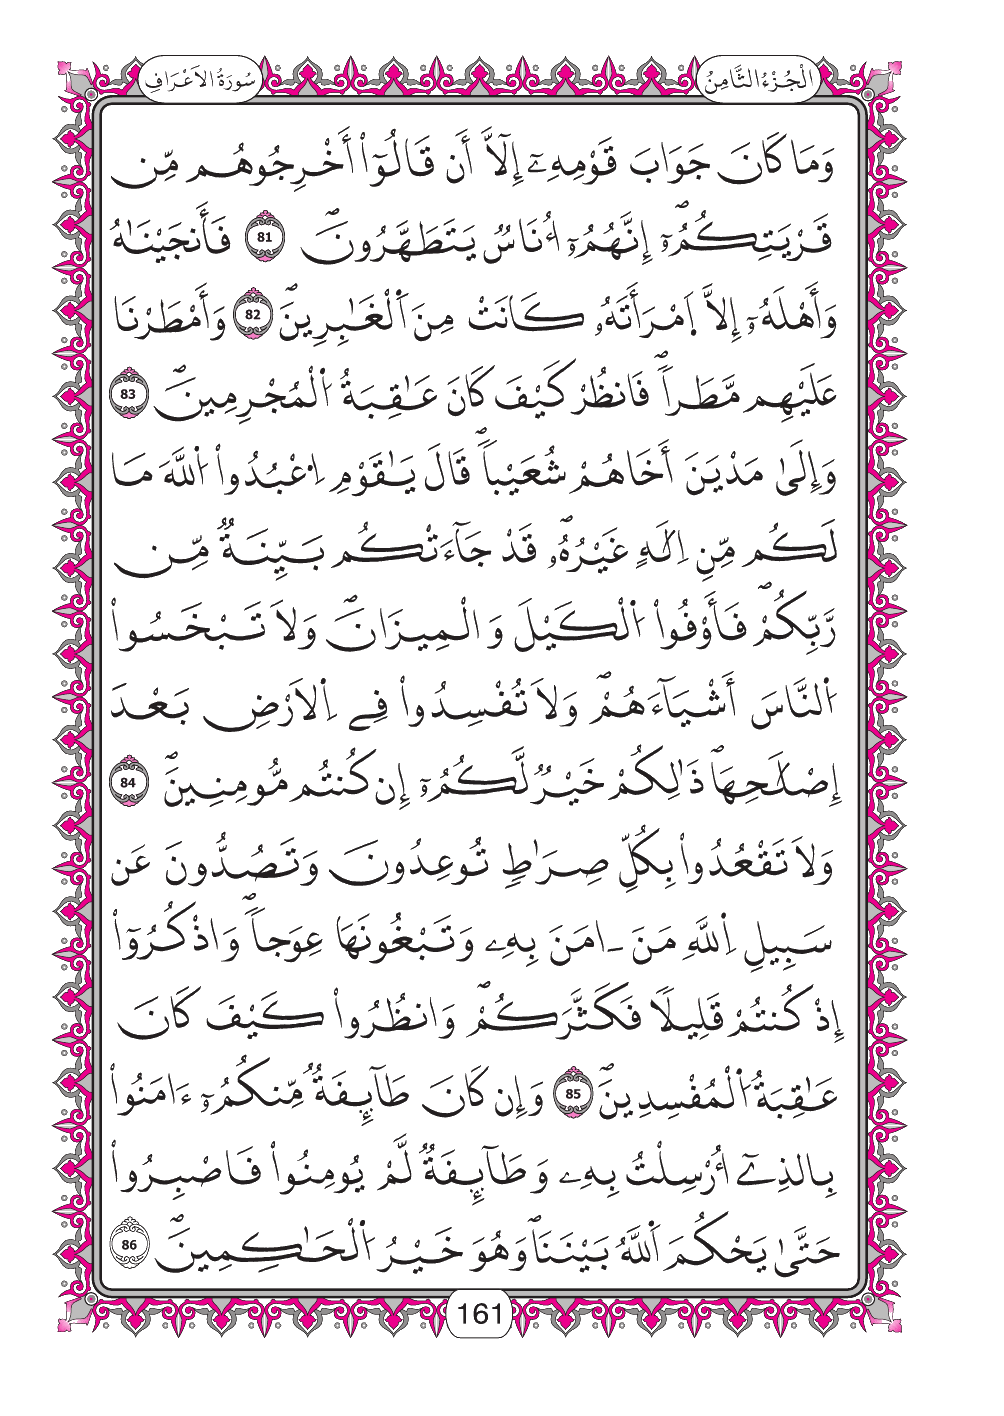 الْجُزْءُ الثَّامِنُ
سُورَةُ الاَعْرَافِ
وَمَا كَانَ جَوَابَ قَوْمِهِۦٓ إِلَّآ أَن قَالُوٓاْ أَخْرِجُوهُم مِّن
قَرْيَتِكُمُۥٓۖ إِنَّهُمُۥٓ أُنَاسٌ يَتَطَهَّرُونَۖ 81 فَأَنجَيْنَٰهُ
وَأَهْلَهُۥٓ إِلَّا اَمْرَأَتَهُۥ كَانَتْ مِنَ اَلْغَٰبِرِينَۖ 82 وَأَمْطَرْنَا
عَلَيْهِم مَّطَراٗۖ فَانظُرْ كَيْفَ كَانَ عَٰقِبَةُ اُلْمُجْرِمِينَۖ 83
وَإِلَىٰ مَدْيَنَ أَخَاهُمْ شُعَيْباٗۖ قَالَ يَٰقَوْمِ اِعْبُدُواْ اُللَّهَ مَا
لَكُم مِّنِ اِلَٰهٍ غَيْرُهُۥۖ قَدْ جَآءَتْكُم بَيِّنَةٞ مِّن
رَّبِّكُمْۖ فَأَوْفُواْ اُلْكَيْلَ وَالْمِيزَانَۖ وَلَا تَبْخَسُواْ
اُلنَّاسَ أَشْيَآءَهُمْۖ وَلَا تُفْسِدُواْ فِے اِلَارْضِ بَعْدَ
إِصْلَٰحِهَاۖ ذَٰلِكُمْ خَيْرٞ لَّكُمُۥٓ إِن كُنتُم مُّومِنِينَۖ 84
وَلَا تَقْعُدُواْ بِكُلِّ صِرَٰطٖ تُوعِدُونَ وَتَصُدُّونَ عَن
سَبِيلِ اِللَّهِ مَنَ اٰمَنَ بِهِۦ وَتَبْغُونَهَا عِوَجاٗۖ وَاذْكُرُوٓاْ
إِذْ كُنتُمْ قَلِيلاٗ فَكَثَّرَكُمْۖ وَانظُرُواْ كَيْفَ كَانَ
عَٰقِبَةُ اُلْمُفْسِدِينَۖ 85 وَإِن كَانَ طَآئِفَةٞ مِّنكُمُۥٓ ءَامَنُواْ
بِالذِےٓ أُرْسِلْتُ بِهِۦ وَطَآئِفَةٞ لَّمْ يُومِنُواْ فَاصْبِرُواْ
حَتَّىٰ يَحْكُمَ اَللَّهُ بَيْنَنَاۖ وَهُوَ خَيْرُ اُلْحَٰكِمِينَۖ 86
161